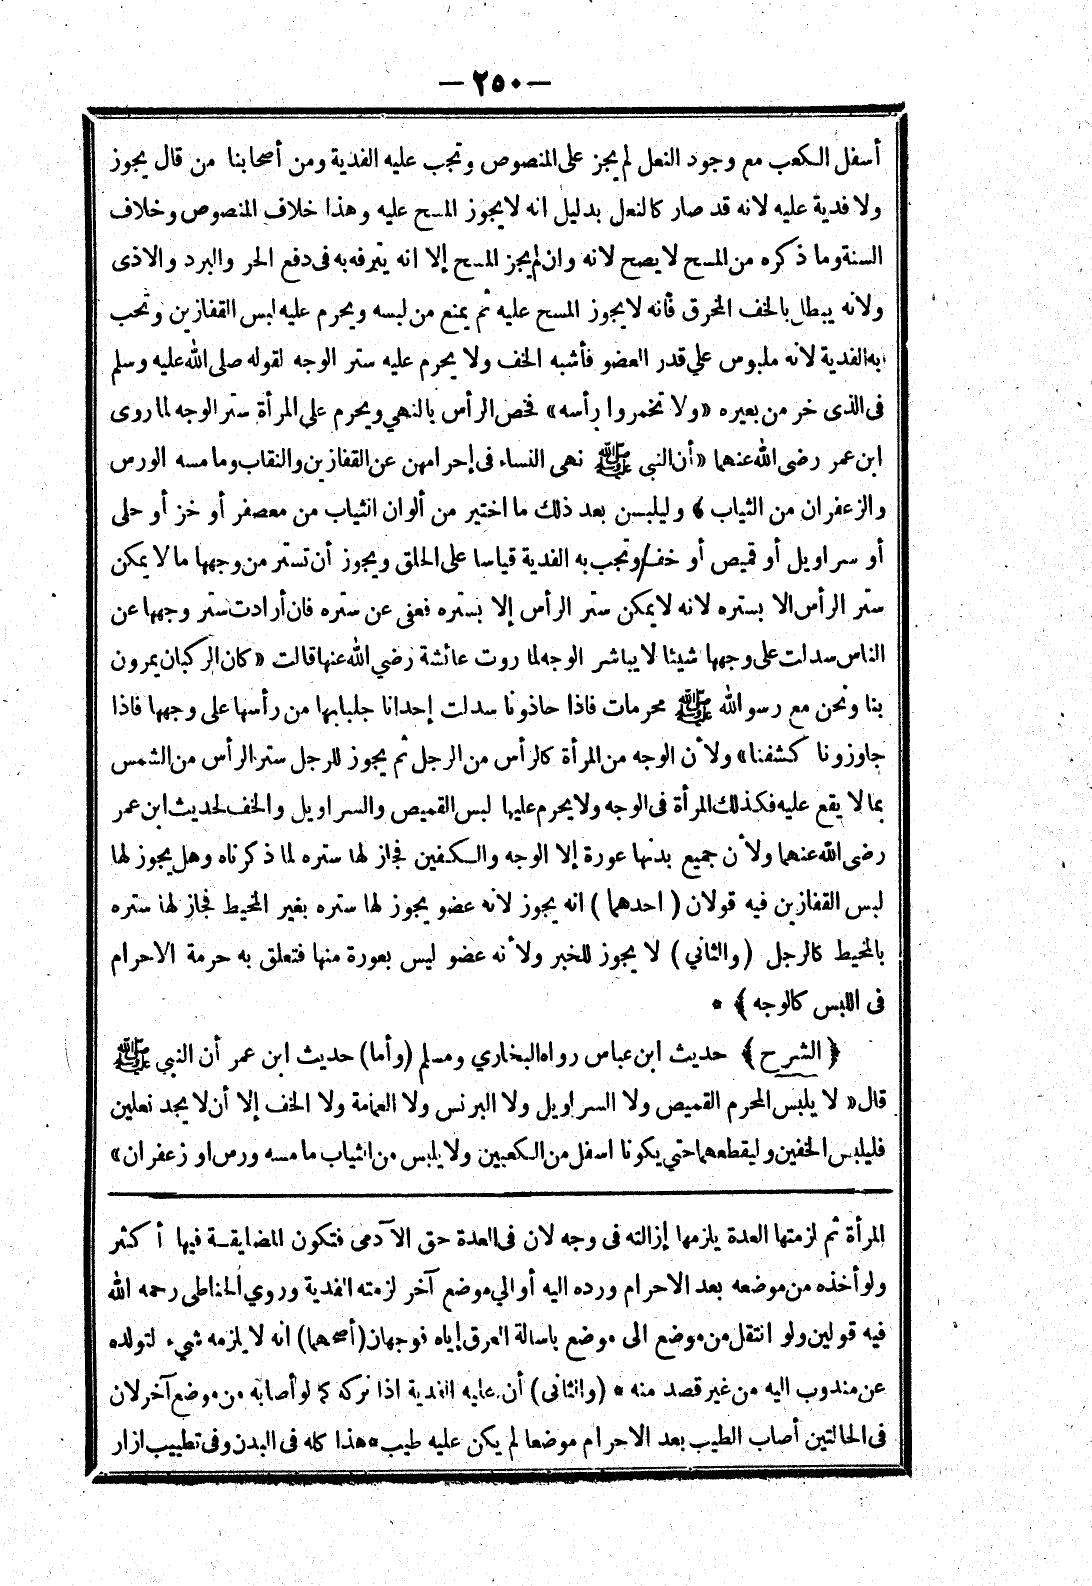 — ٢٥٠ —
أسفل الكعب مع وجود النعل لم يجز على المنصوص وتجب عليه الفدية ومن أصحابنا من قال يجوز
ولا فدية عليه لانه قد صار كالنعل بدليل انه لا يجوز المسح عليه وهذا خلاف المنصوص وخلاف
السنة وما ذكره من المسح لا يصح لانه وان لم يجز المسح إلا انه يترفه به فى دفع الحر والبرد والاذى
ولانه يبطل بالخف المخرق فأنه لا يجوز المسح عليه ثم يمنع من لبسه ويحرم عليه لبس القفازين وتحب
به الفدية لانه ملبوس علي قدر العضو فأشبه الخف ولا يحرم عليه ستر الوجه لقوله صلى الله عليه وسلم
فى الذى خر من بعيره «ولا تخمروا رأسه» فخص الرأس بالنهي ويحرم على المرأة ستر الوجه لما روى
ابن عمر رضى الله عنهما «أن النبي ﷺ نهى النساء فى إحرامهن عن القفازين والنقاب وما مسه الورس
والزعفران من الثياب ﴾ وليلبسن بعد ذلك ما اختير من ألوان الثياب من معصفر أو خز أو حلى
أو سراويل أو قميص أو خف/وتجب به الفدية قياسا على الحلق ويجوز أن تستر من وجهها ما لا يمكن
ستر الرأس الا بستره لانه لا يمكن ستر الرأس إلا بستره فعفى عن ستره فان أرادت ستر وجهها عن
الناس سدلت على وجهها شيئا لا يباشر الوجه لما روت عائشة رضي الله عنها قالت «كان الركبان يمرون
بنا ونحن مع رسو الله ﷺ محرمات فاذا حاذونا سدلت إحدانا جلبابها من رأسها على وجهها فاذا
جاوزونا كشفنا» ولأن الوجه من المرأة كالرأس من الرجل ثم يجوز للرجل ستر الرأس من الشمس
بما لا يقع عليه فكذلك المرأة فى الوجه ولا يحرم عليها لبس القميص والسراويل والخف لحديث ابن عمر
رضى الله عنهما ولأن جميع بدنها عورة إلا الوجه والكفين فجاز لها ستره لما ذكرناه وهل يجوز لها
لبس القفازين فيه قولان (احدهما) انه يجوز لانه عضو يجوز لها ستره بغير المخيط فجاز لها ستره
بالمخيط كالرجل (والثاني) لا يجوز للخبر ولأنه عضو ليس بعورة منها فتعلق به حرمة الاحرام
فى اللبس كالوجه ﴾ *
﴿ الشرح ﴾ حديث ابن عباس رواه البخاري ومسلم (وأما) حديث ابن عمر أن النبي ﷺ
قال « لا يلبس المحرم القميص ولا السراويل ولا البرنس ولا العمامة ولا الخف إلا أن لا يجد نعلين
فليلبس الخفين وليقطعهما حتي يكونا اسفل من الكعبين ولا يلبس من الثياب ما مسه ورس او زعفران»
المرأة ثم لزمتها العدة يلزمها إزالته فى وجه لان فى العدة حق الآدمى فتكون المضايقة فيها أكثر
ولو أخذه من موضعه بعد الاحرام ورده اليه أو الي موضع آخر لزمته الفدية وروي الحناطى رحمه الله
فيه قولين ولو انتقل من موضع الى موضع باسالة العرق إياه فوجهان (أصحهما) انه لا يلزمه شيء لتولده
عن مندوب اليه من غير قصد منه * (والثانى) أن عليه الفدية اذا تركه كما لو أصابه من موضع آخر لان
فى الحالتين أصاب الطيب بعد الاحرام موضعا لم يكن عليه طيب * هذا كله فى البدن وفى تطييب ازار